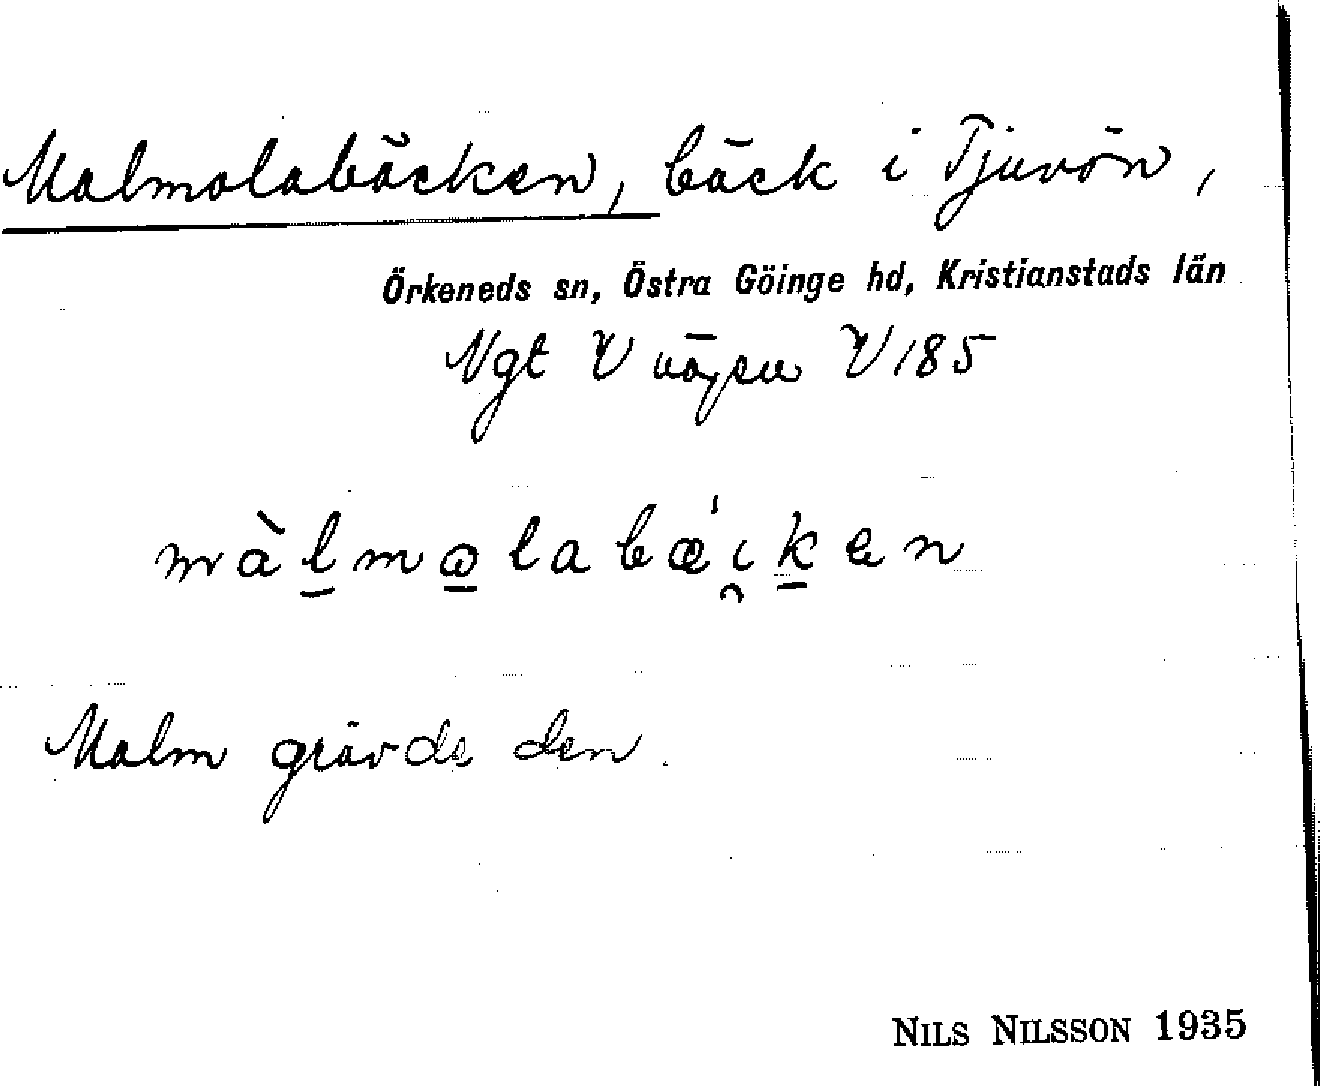 Malmolabäcken, bäck i Tjuvön,
Örkeneds sn, Östra Göinge hd, Kristianstads län
Ngt V vägen V185
màl̲mo̲labǽi̯k̲en
Malm grävde den.
NILS NILSSON 1935